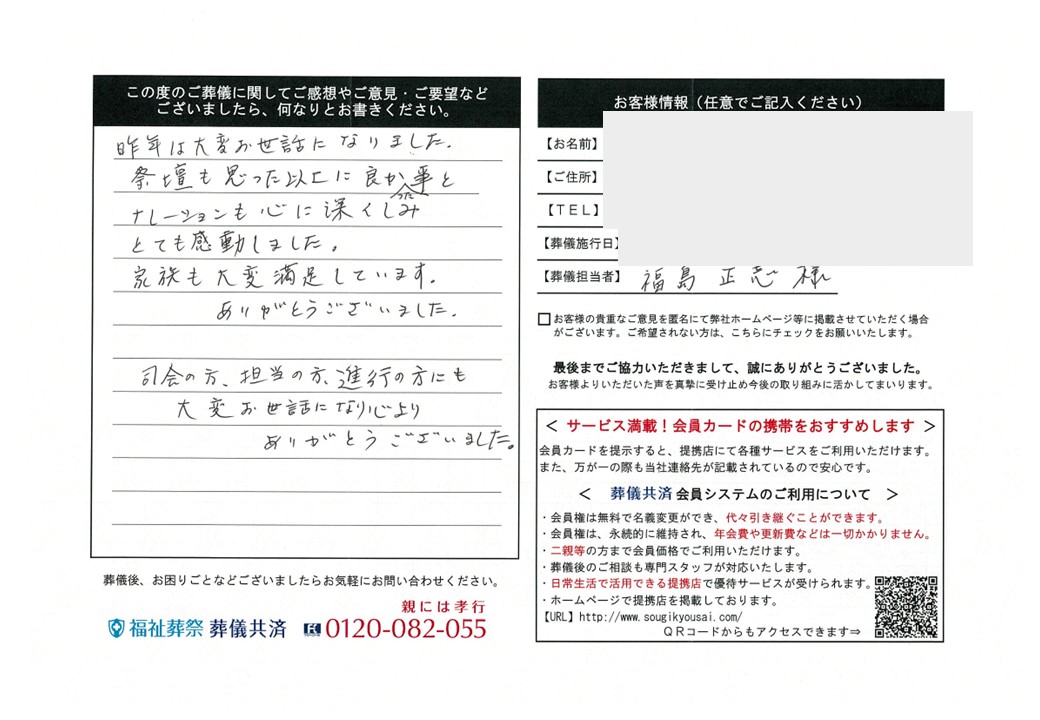 この度のご葬儀に関してご感想やご意見・ご要望など
ございましたら、何なりとお書きください。
昨年は大変お世話になりました。
祭壇も思った以上に良か事と
った
ナレーションも心に深くしみ
とても感動しました。
家族も大変満足しています。
ありがとうございました。
司会の方、担当の方、進行の方にも
大変お世話になり心より
ありがとうございました。
葬儀後、お困りごとなどございましたらお気軽にお問い合わせください。
親には孝行
福祉葬祭 葬儀共済 0120-082-055
お客様情報（任意でご記入ください）
【お名前】
【ご住所】
【TEL】
【葬儀施行日】
【葬儀担当者】 福島 正志 様
□お客様の貴重なご意見を匿名にて弊社ホームページ等に掲載させていただく場合
がございます。ご希望されない方は、こちらにチェックをお願いいたします。
最後までご協力いただきまして、誠にありがとうございました。
お客様よりいただいた声を真摯に受け止め今後の取り組みに活かしてまいります。
＜ サービス満載！会員カードの携帯をおすすめします ＞
会員カードを提示すると、提携店にて各種サービスをご利用いただけます。
また、万が一の際も当社連絡先が記載されているので安心です。
＜ 葬儀共済 会員システムのご利用について ＞
・会員権は無料で名義変更ができ、代々引き継ぐことができます。
・会員権は、永続的に維持され、年会費や更新費などは一切かかりません。
・二親等の方まで会員価格でご利用いただけます。
・葬儀後のご相談も専門スタッフが対応いたします。
・日常生活で活用できる提携店で優待サービスが受けられます。
・ホームページで提携店を掲載しております。
【URL】http://www.sougikyousai.com/
QRコードからもアクセスできます⇒